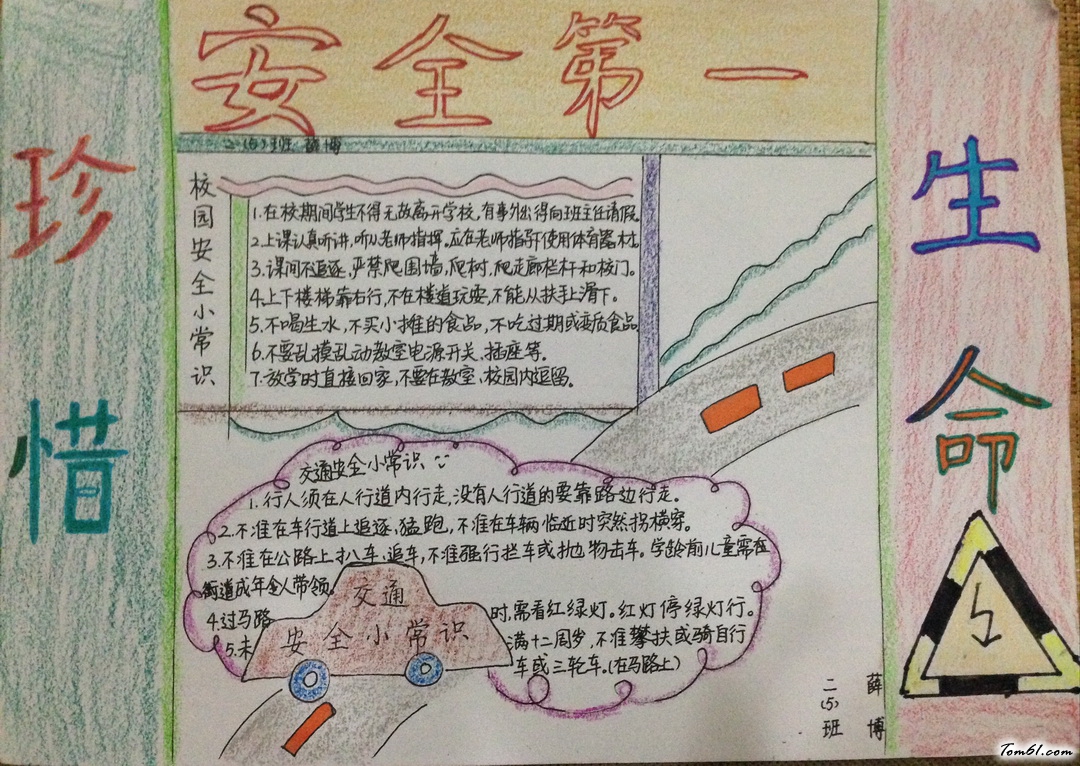 安全第一
珍惜
生命
二(5)班 薛博
校园安全小常识
1.在校期间学生不得无故离开学校,有事外出得向班主任请假。
2.上课认真听讲,听从老师指挥。应在老师指导下使用体育器材。
3.课间不追逐,严禁爬围墙,爬树,爬走廊栏杆和校门。
4.上下楼梯靠右行,不在楼道玩耍,不能从扶手上滑下。
5.不喝生水,不买小摊的食品,不吃过期或变质食品
6.不要乱摸乱动教室电源开关、插座等。
7.放学时直接回家,不要在教室、校园内逗留。
交通安全小常识
1.行人须在人行道内行走,没有人行道的要靠路边行走。
2.不准在车行道上追逐、猛跑,不准在车辆临近时突然拐横穿。
3.不准在公路上扒车、追车,不准强行拦车或抛物击车。学龄前儿童需在
街道成年人带领。
4.过马路时,需看红绿灯。红灯停绿灯行。
5.未满十二周岁,不准攀扶或骑自行
车或三轮车。(在马路上)
交通
安全小常识
二(5)班
薛博
Tom61.com